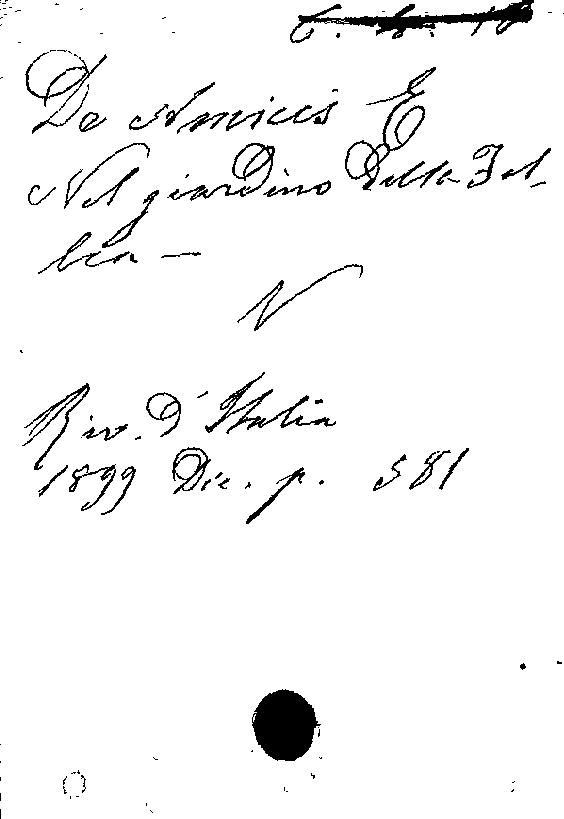 De Amicis E
Nel giardino della Fol-
lia —
N
Riv. d'Italia
1899 Dic. p. 581